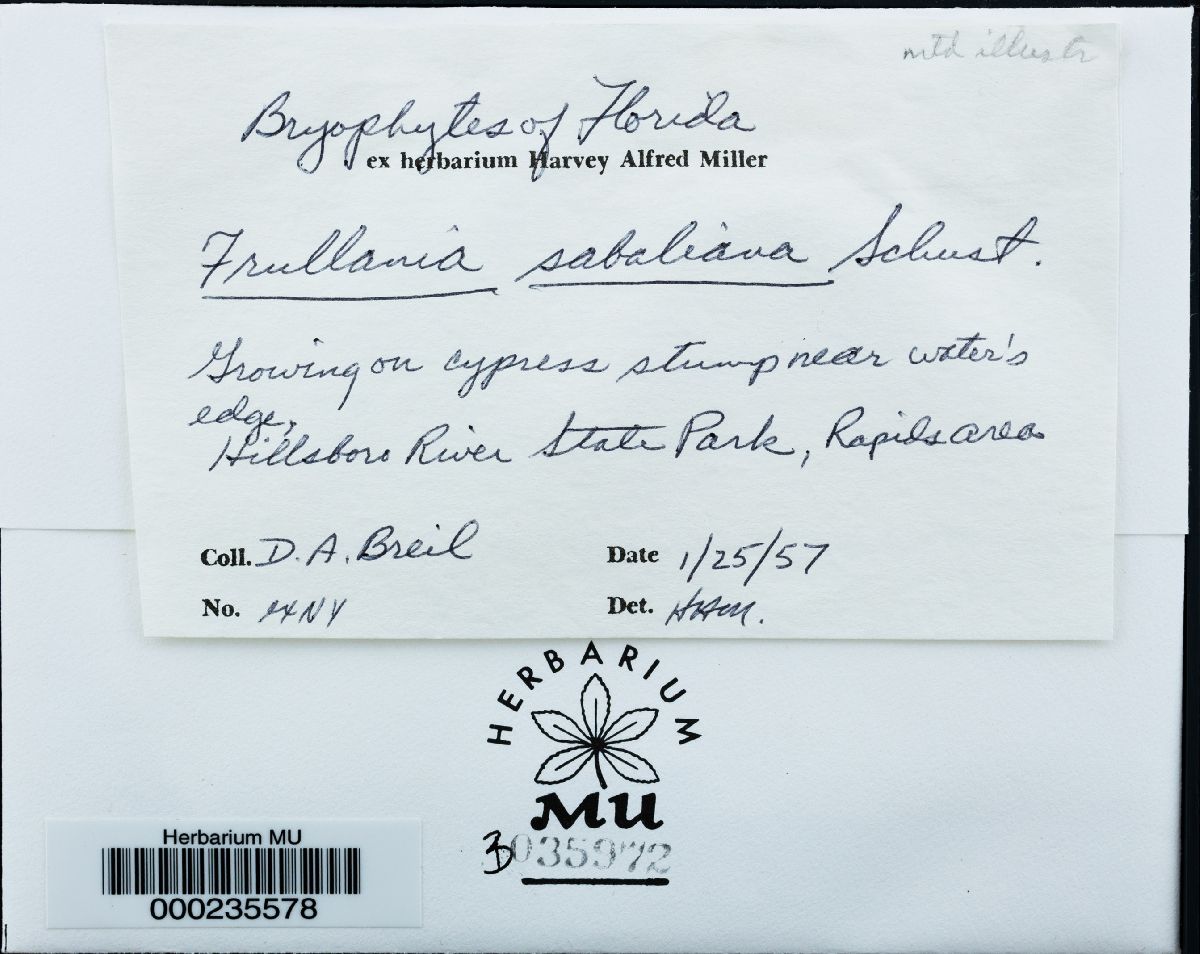 mtd illustr
Bryophytes of Florida
ex herbarium Harvey Alfred Miller
Frullania sabaliana Schust.
Growing on cypress stump near water's
edge,
Hillsboro River State Park, Rapids area
Coll. D. A. Breil
Date 1/25/57
No. exNY
Det. HAM.
HERBARIUM
MU
B 035972
Herbarium MU
000235578